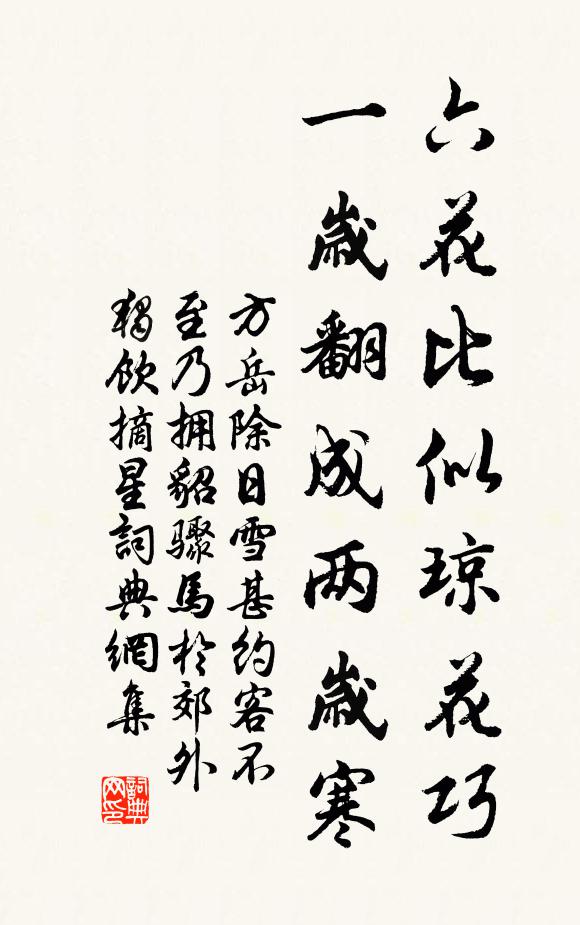 六花比似琼花巧
一岁翻成两岁寒
方岳除日雪甚约客不
至乃拥貂骤馬於郊外
獨饮摘星詞典網集
詞典网印